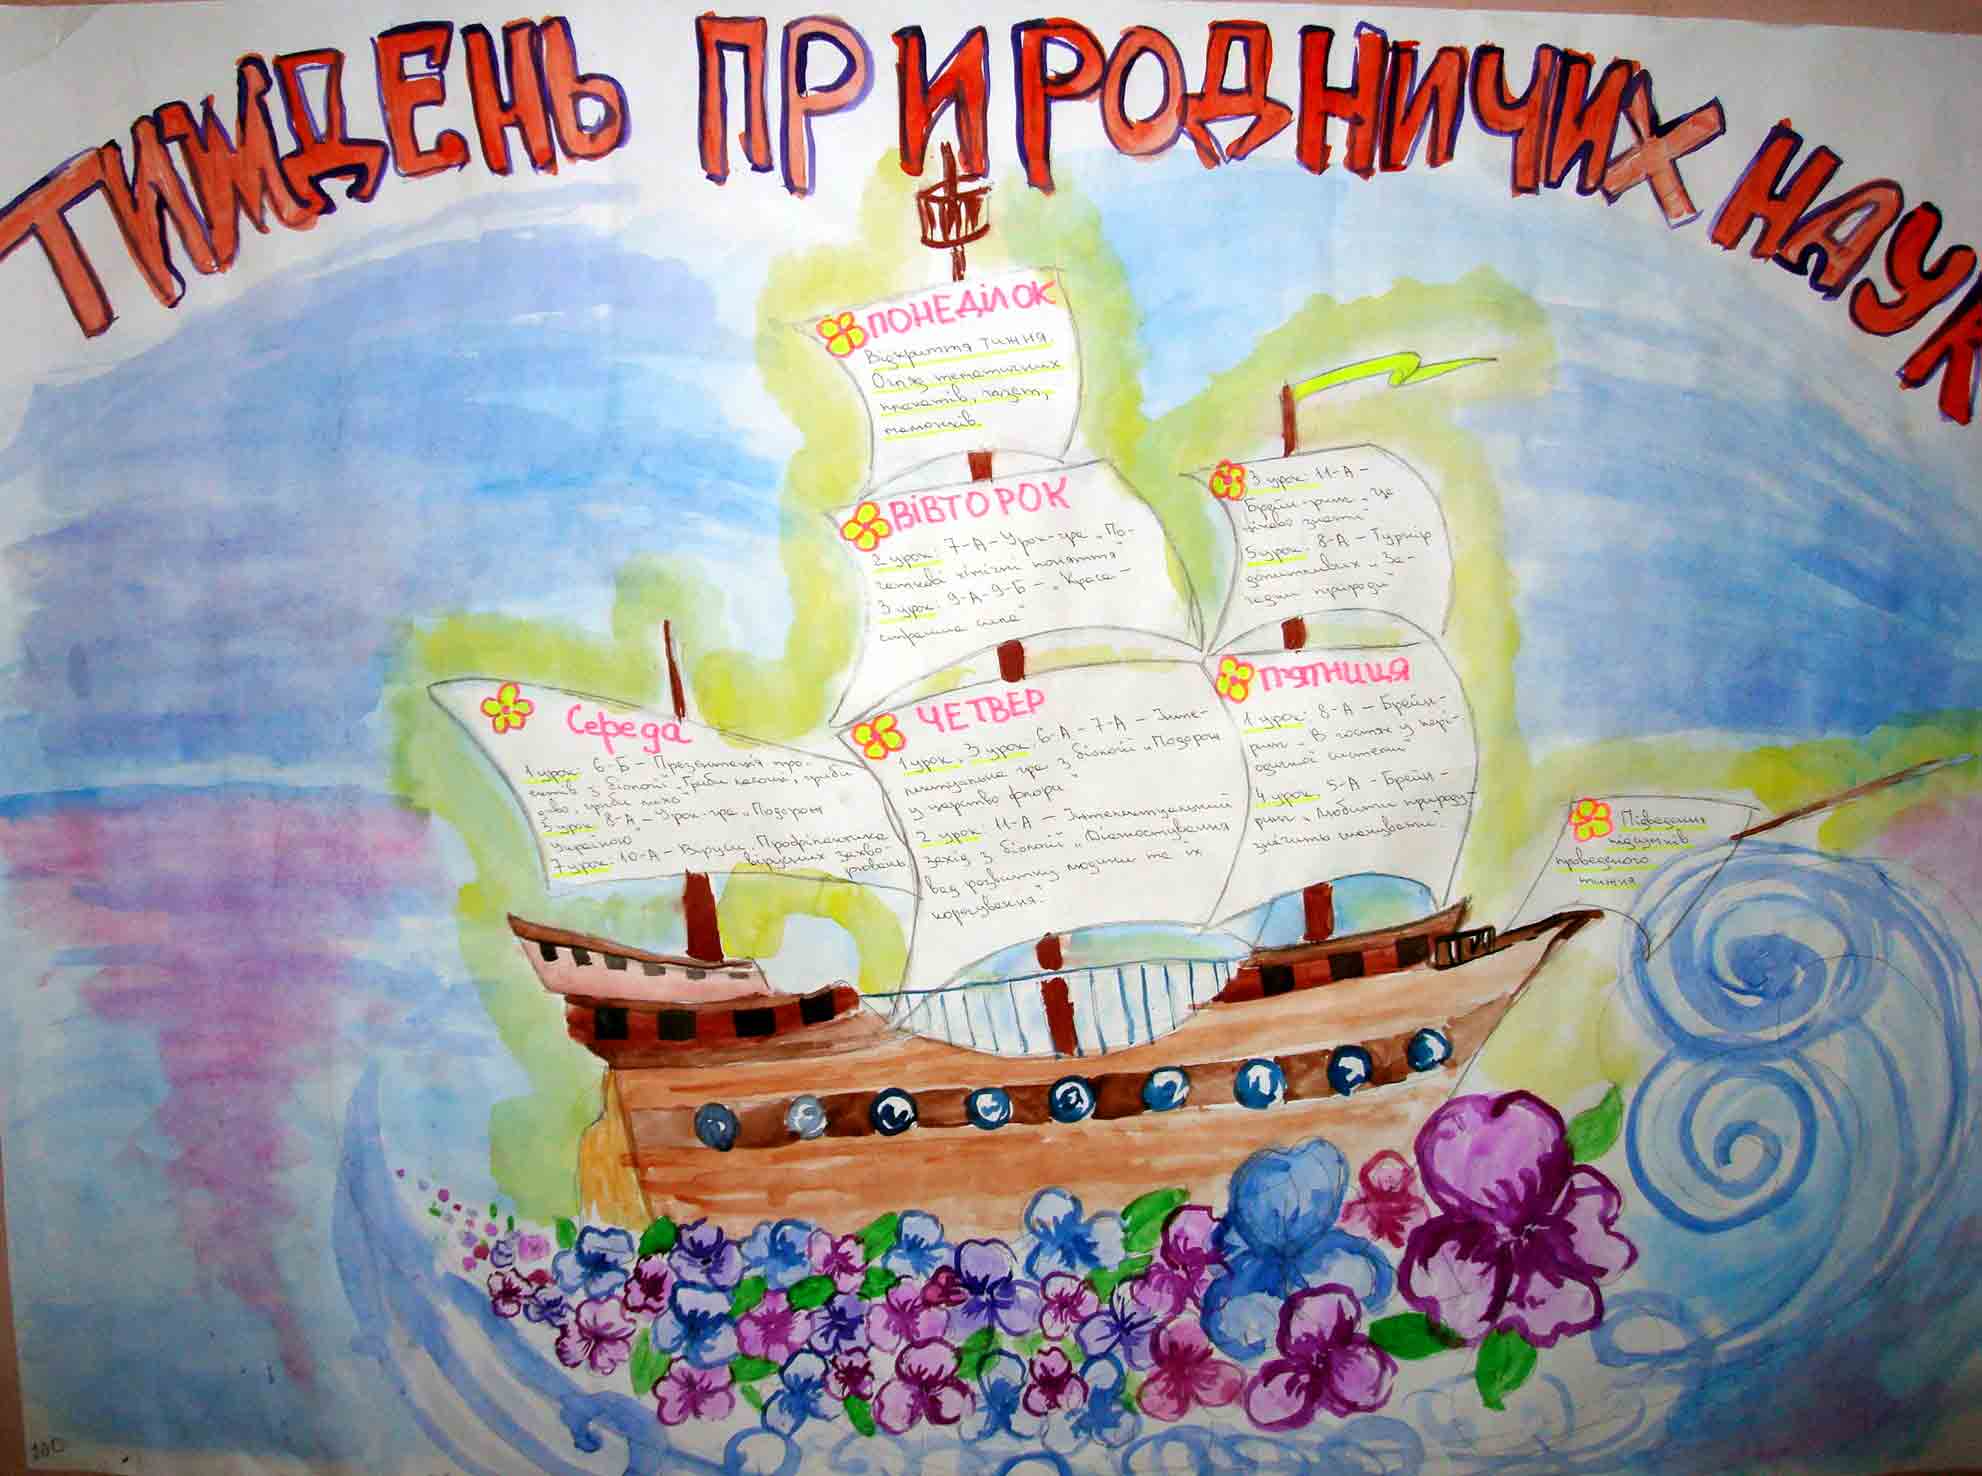 ТИЖДЕНЬ ПРИРОДНИЧИХ НАУК
ПОНЕДІЛОК
Відкриття тижня.
Огляд тематичних
плакатів, газет,
малюнків.
ВІВТОРОК
2 урок: 7-А – Урок-гра „По-
чаткові хімічні поняття"
3 урок: 9-А, 9-Б – „Краса –
страшна сила"
Середа
1 урок: 6-Б – Презентація про-
ектів з біології „Гриби
диво, гриби лихо"
5 урок: 8-А – Урок-гра „Подорож
Україною"
7 урок: 10-А – Віруси. Профілактика
вірусних захво-
рювань.
ЧЕТВЕР
1 урок, 3 урок: 6-А – 7-А – Інте-
лектуальна гра з біології „Подорож
у царство флори"
2 урок: 11-А – Інтелектуальний
захід з біології „Діагностування
вад розвитку людини та їх
коригування."
3 урок: 11-А –
Брейн-ринг „Це
цікаво знати"
5 урок: 8-А – Турнір
допитливих „За-
гадки природи"
П'ЯТНИЦЯ
1 урок: 8-А – Брейн-
ринг „В гостях у пері-
одичної системи"
4 урок: 5-А – Брейн-
ринг „Любити природу –
значить шанувати".
Підведення
підсумків
проведеного
тижня